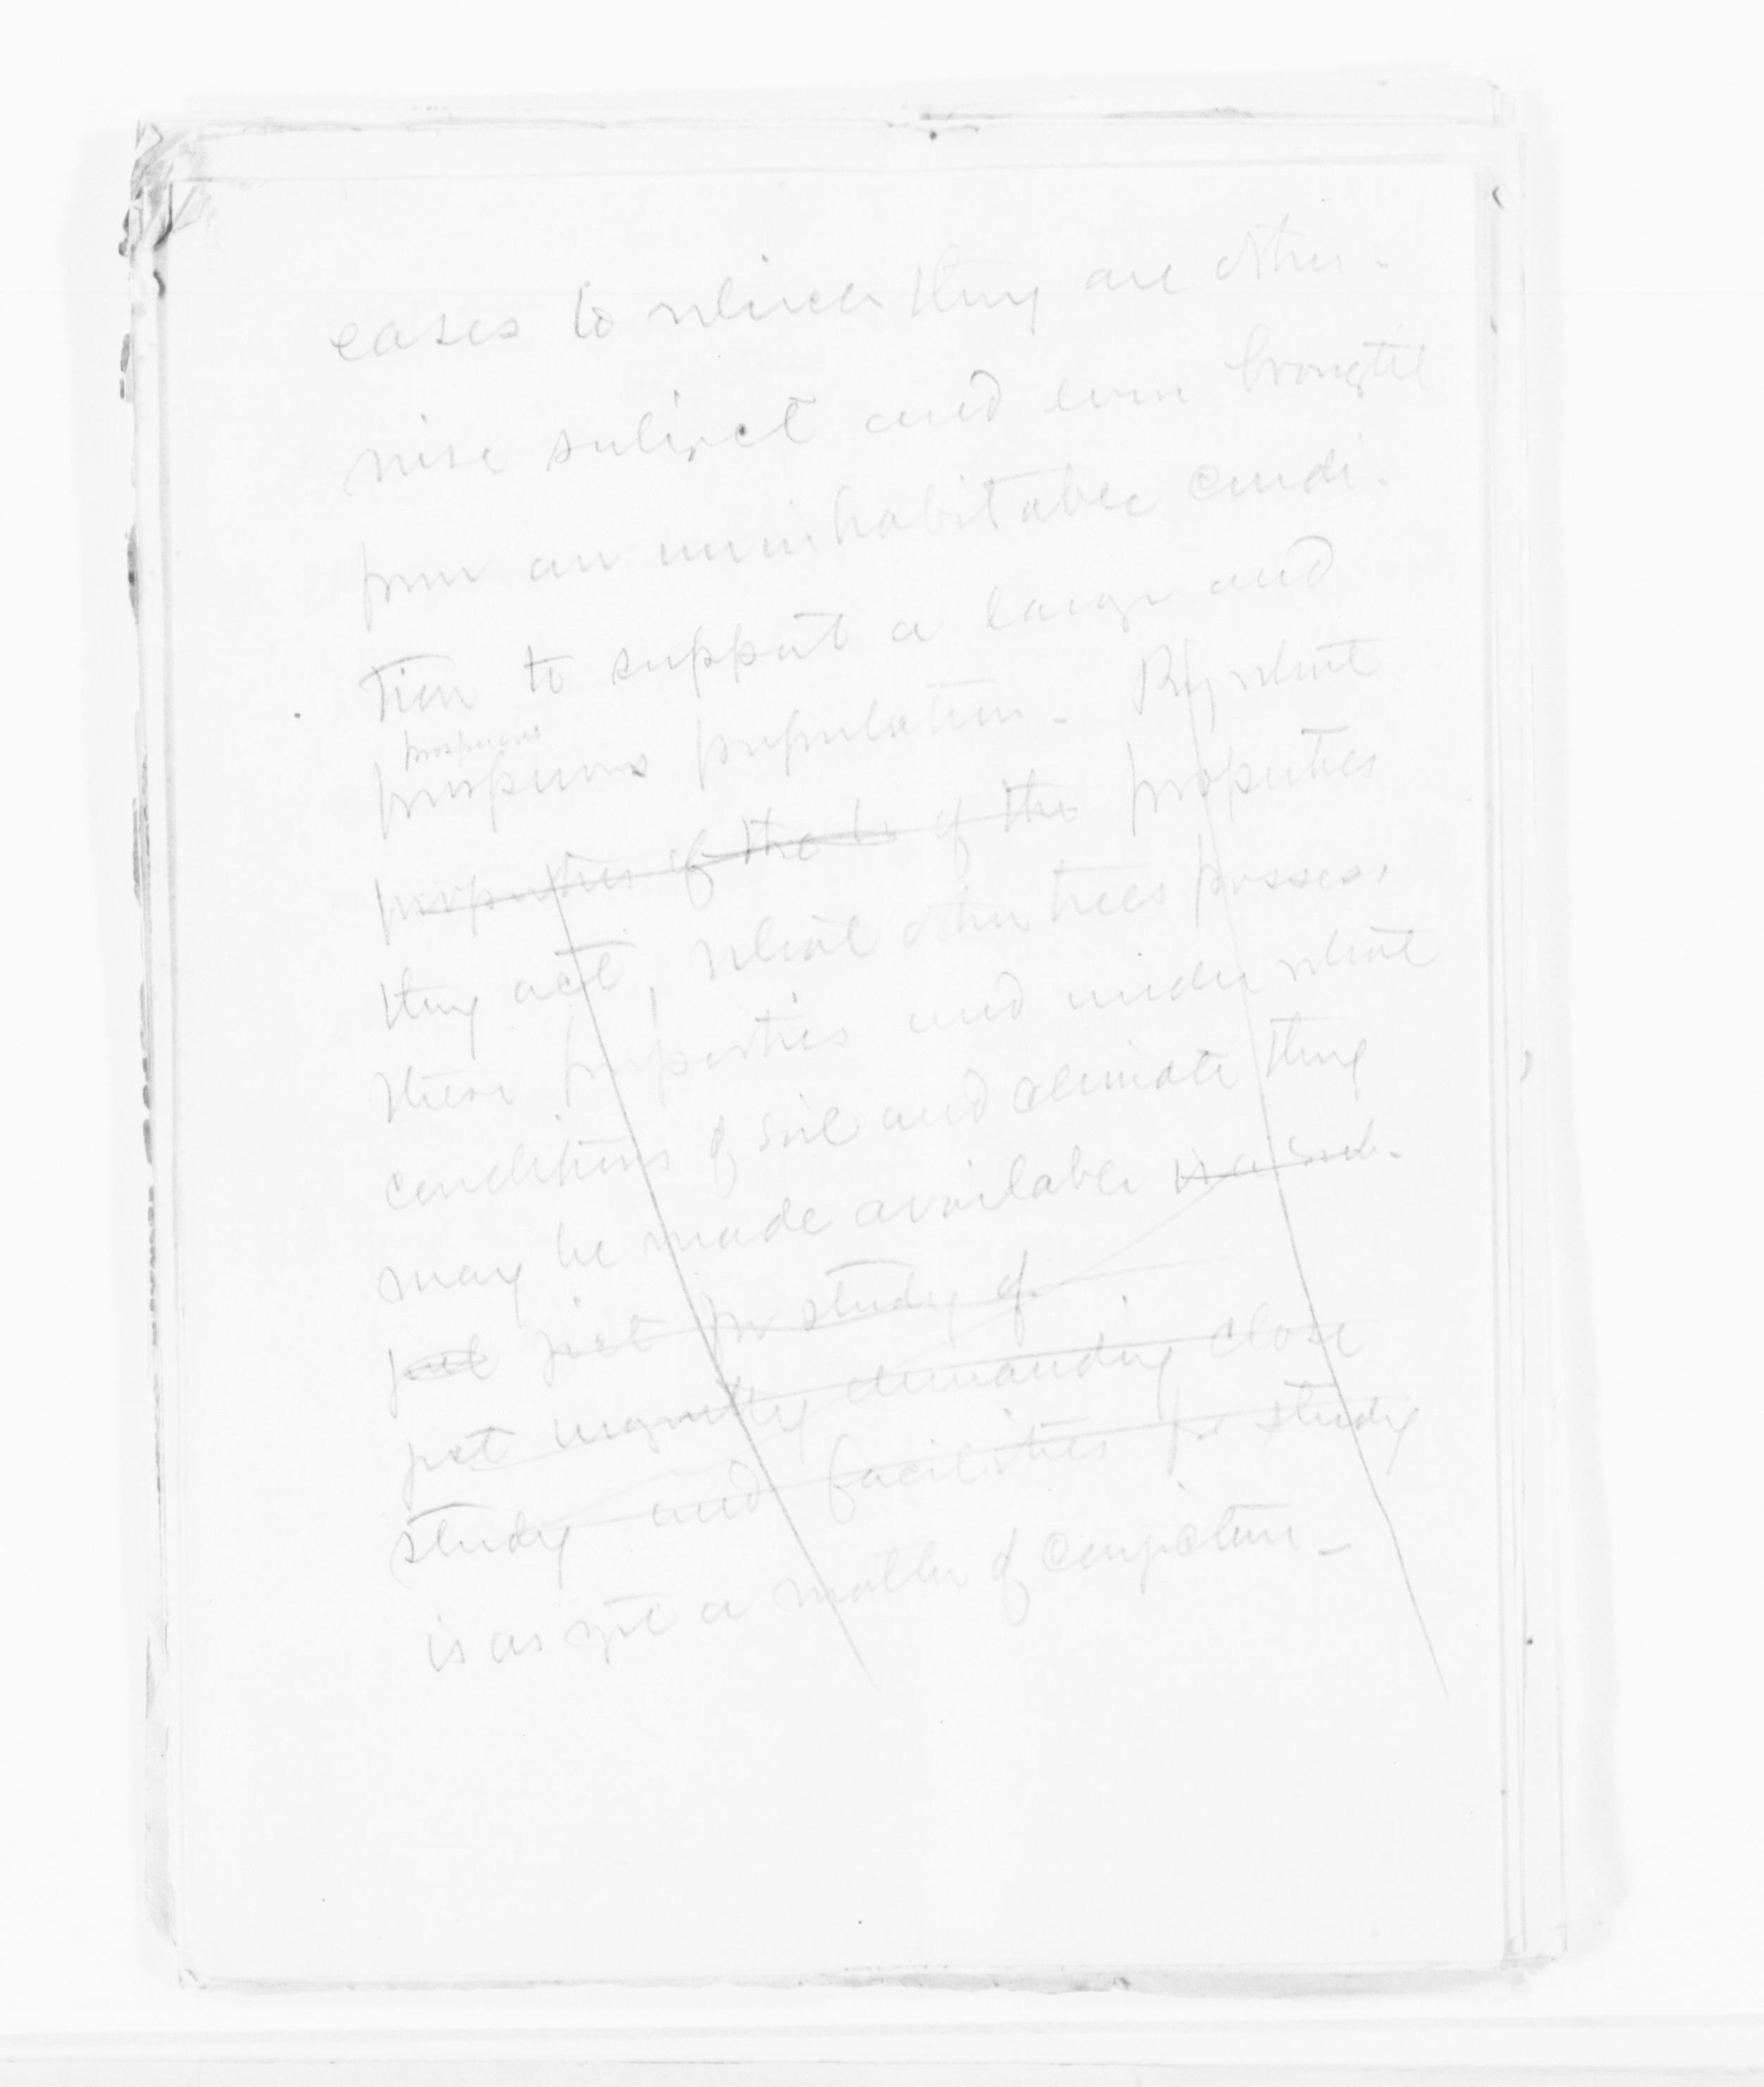 eases to which they are other-
wise subject and even brought
from an uninhabitable condi-
tion to support a large and
prosperous
prosperous population - By what
properties of the tr of the properties
they act, what other trees possess
these properties and under what
conditions of soil and climate they
may be made available is a sub-
ject for study of
ject urgently demanding close
study and facilities for study
is as yet a matter of conjecture -